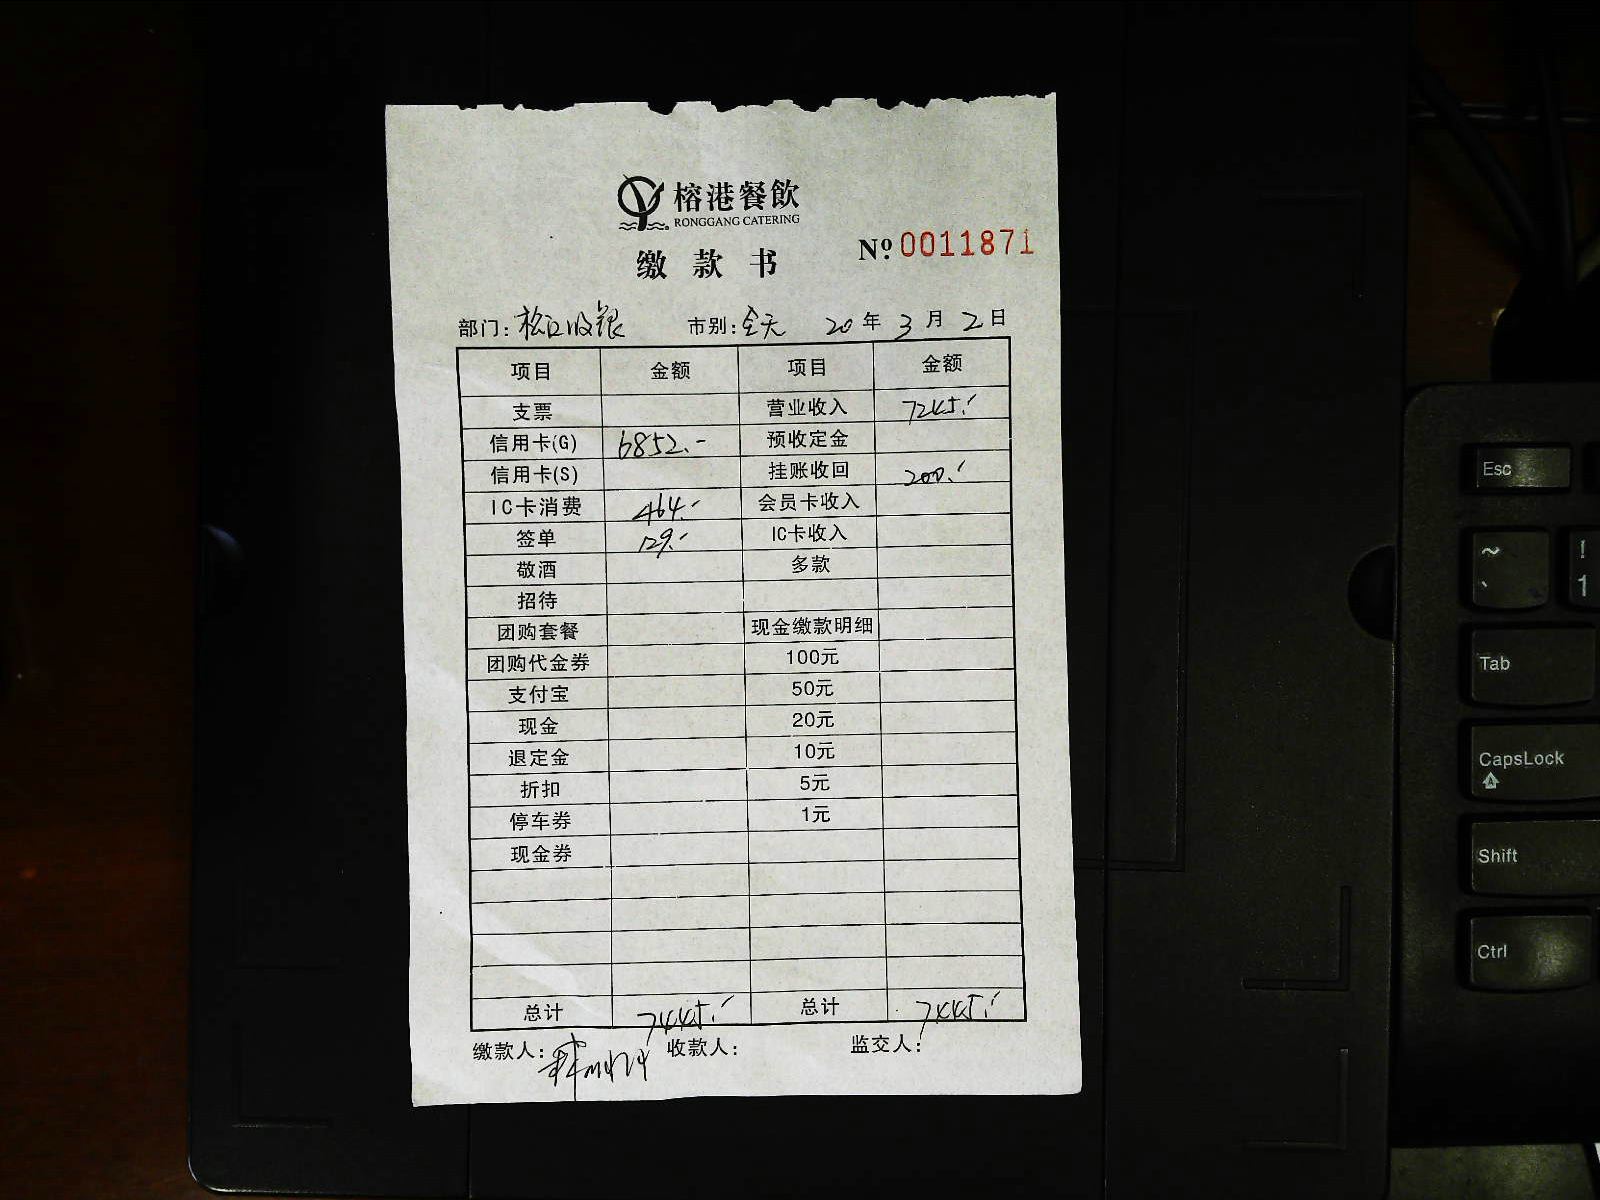 榕港餐飲
RONGGANG CATERING
缴款书 Nº 0011871
部门: 松口收银 市别: 全天 20年3月2日
项目 金额 项目 金额
支票 营业收入 7245.-
信用卡(G) 6852.- 预收定金
信用卡(S) 挂账收回 200.-
IC卡消费 464.- 会员卡收入
签单 129.- IC卡收入
敬酒 多款
招待
团购套餐 现金缴款明细
团购代金券 100元
支付宝 50元
现金 20元
退定金 10元
折扣 5元
停车券 1元
现金券
总计 7445.- 总计 7445.-
缴款人: 收款人: 监交人:
Esc
~ !
` 1
Tab
CapsLock
Shift
Ctrl